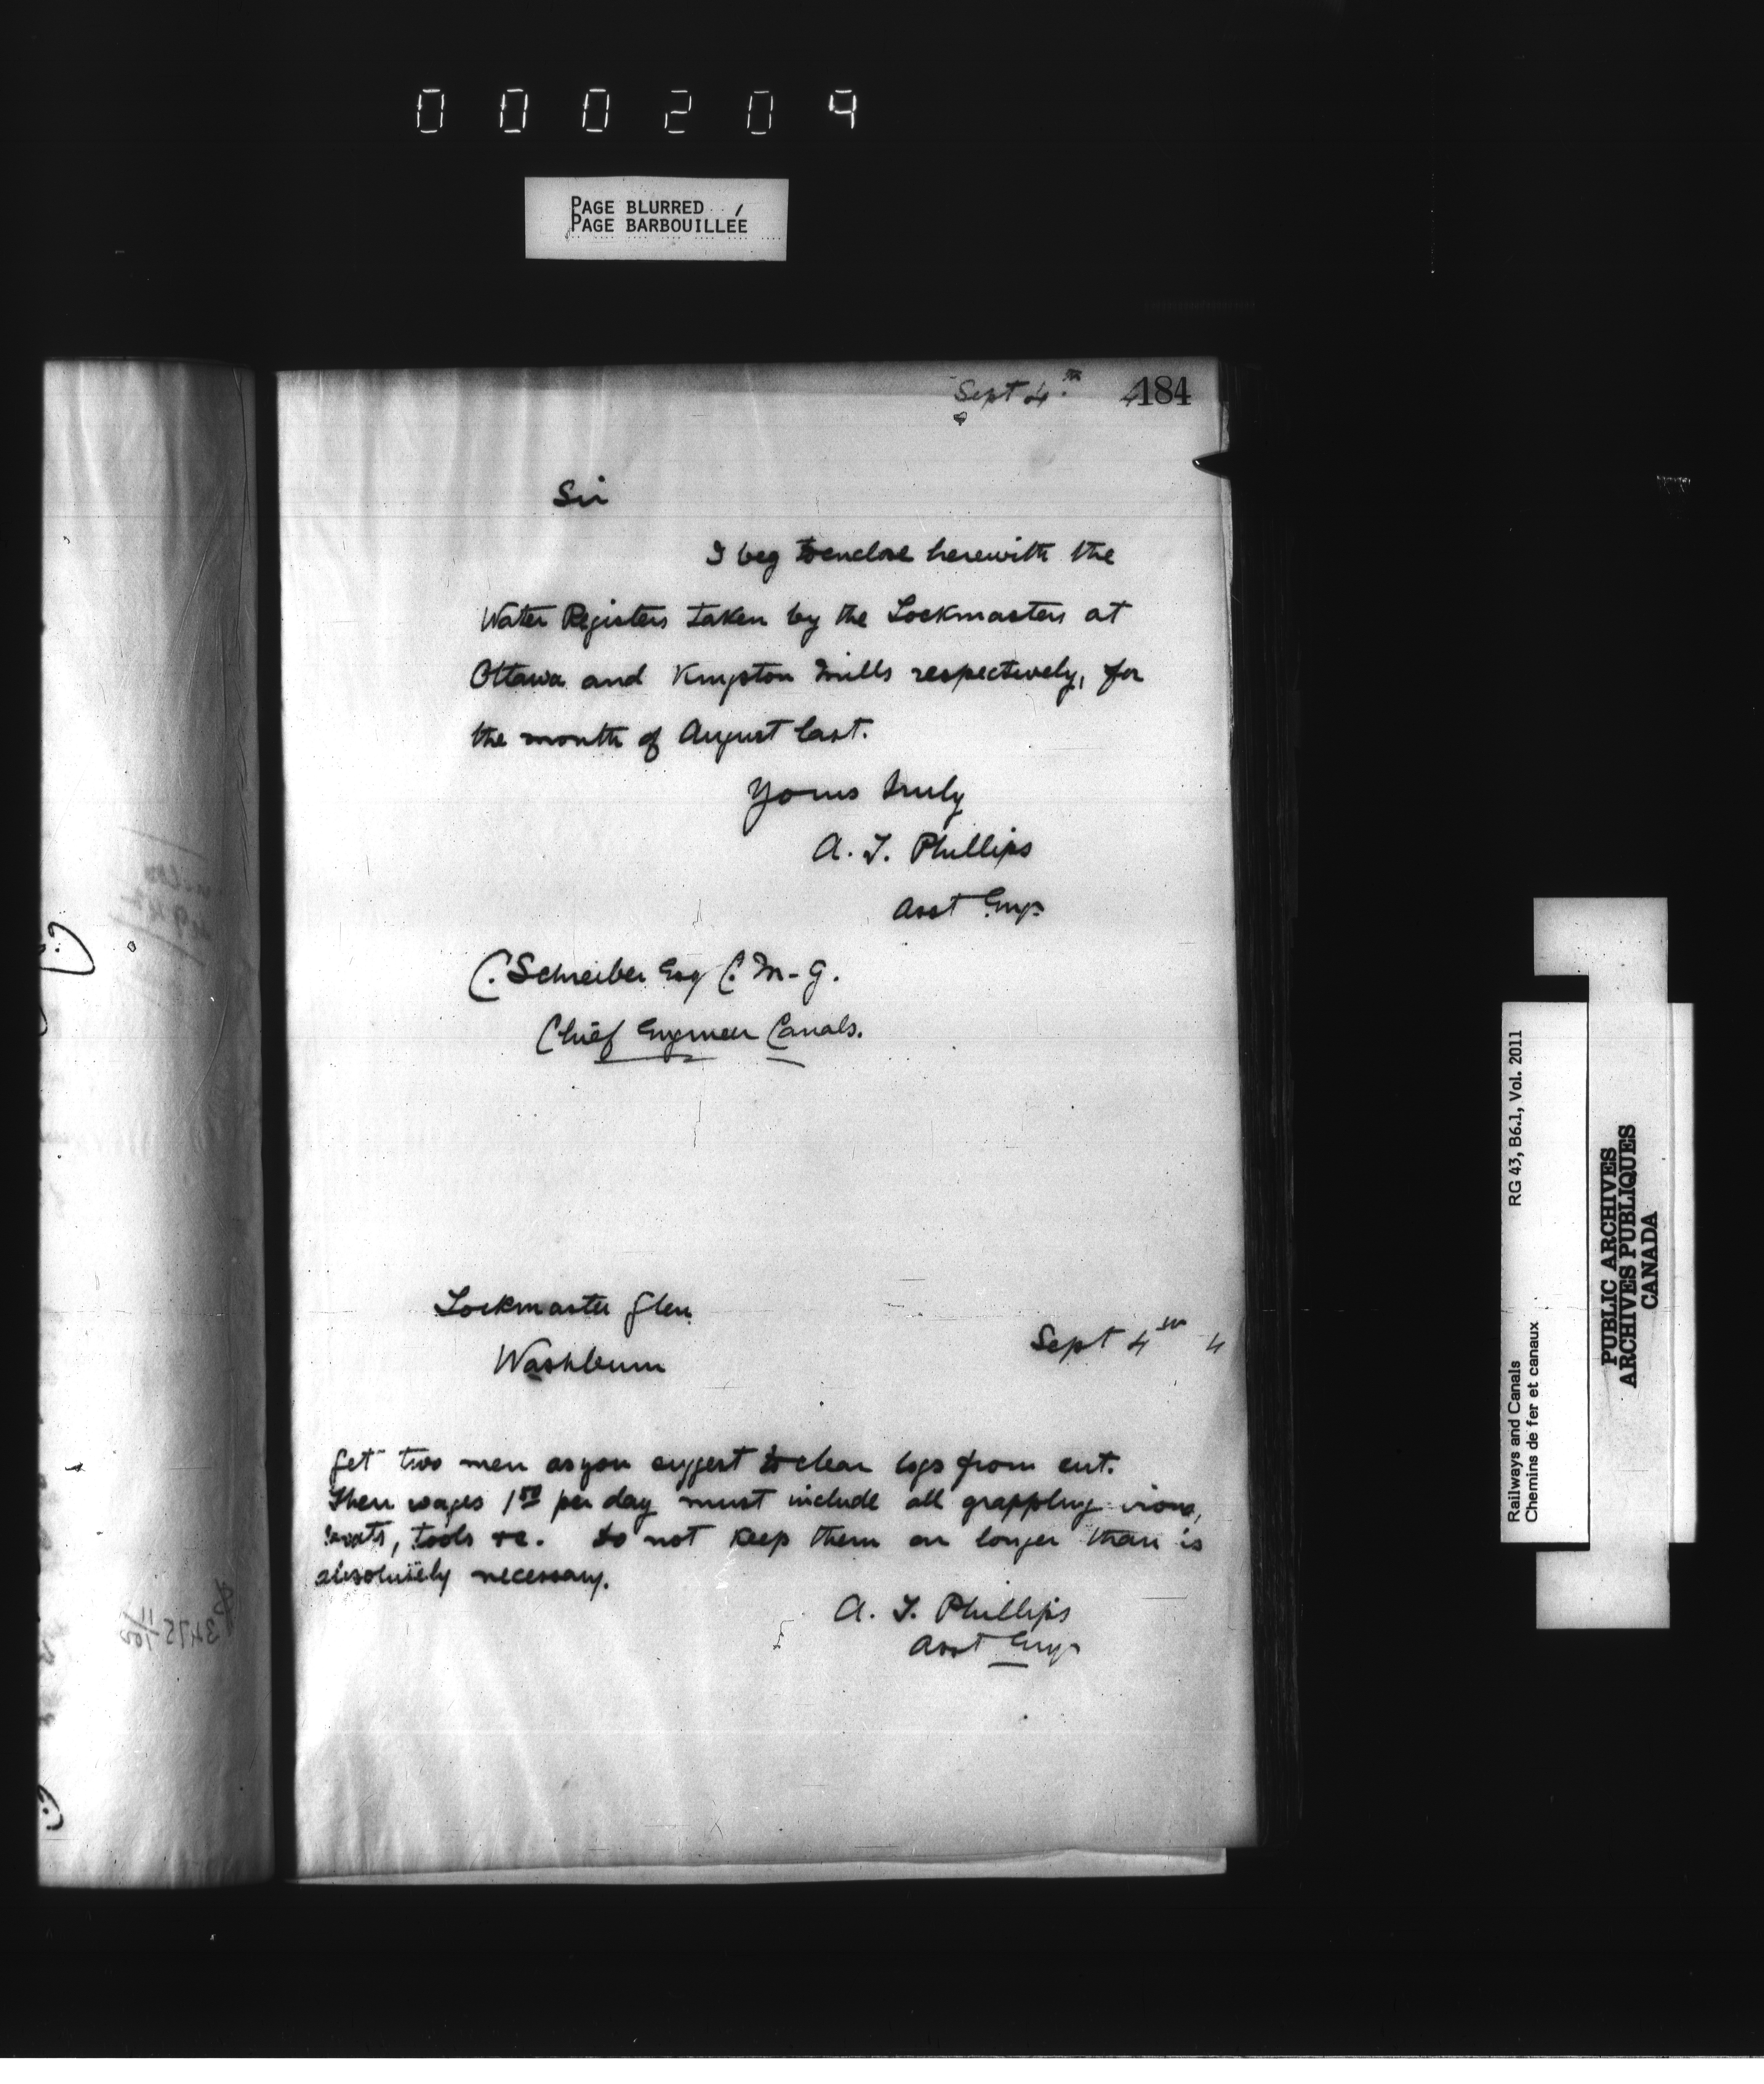 000204
PAGE BLURRED
PAGE BARBOUILLÉE
Sept 4th 4
184
Sir
I beg to enclose herewith the
Water Registers taken by the Lockmasters at
Ottawa and Kingston Mills respectively, for
the month of August last.
Yours truly
A. T. Phillips
Asst Engr
C. Schreiber Esq C. M-G.
Chief Engineer Canals.
Lockmaster Glen
Washburn
Sept 4th 4
Get two men as you suggest to clear logs from cut.
Their wages 1 50 per day must include all grappling irons,
boats, tools &c. Do not keep them on longer than is
absolutely necessary.
A. T. Phillips
Asst Engr
Railways and Canals RG 43, B6.1, Vol. 2011
Chemins de fer et canaux
PUBLIC ARCHIVES
ARCHIVES PUBLIQUES
CANADA